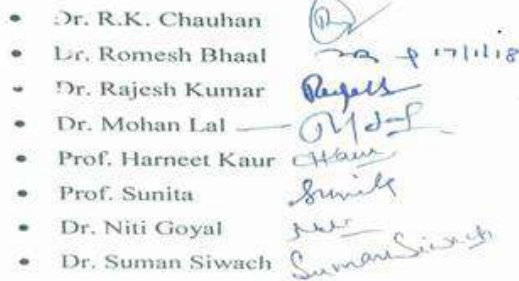 • Dr. R.K. Chauhan
• Dr. Romesh Bhaal 17/1/18
• Dr. Rajesh Kumar Rajesh
• Dr. Mohan Lal —
• Prof. Harneet Kaur HKaur
• Prof. Sunita Sunita
• Dr. Niti Goyal Niti
• Dr. Suman Siwach Suman Siwach